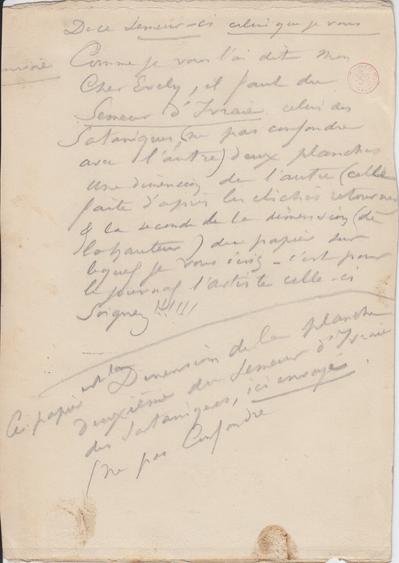 De ce Semeur-ci celui que je vous
envoie
Comme je vous l'ai dit mon
Cher Evely, il faut du
Semeur d'Ivraie celui des
Sataniques (ne pas confondre
avec l'autre) deux planches
Une dimension de l'autre (celle
faite d'après les clichés retournés
& la seconde de la dimension (de
la hauteur) du papier sur
lequel je vous écris – c'est pour
le journal l'artiste celle-ci
Soignez !!!!!
Ce papier est la Dimension de la planche
deuxième du Semeur d'Ivraie
des Sataniques, ici envoyé.
(ne pas Confondre